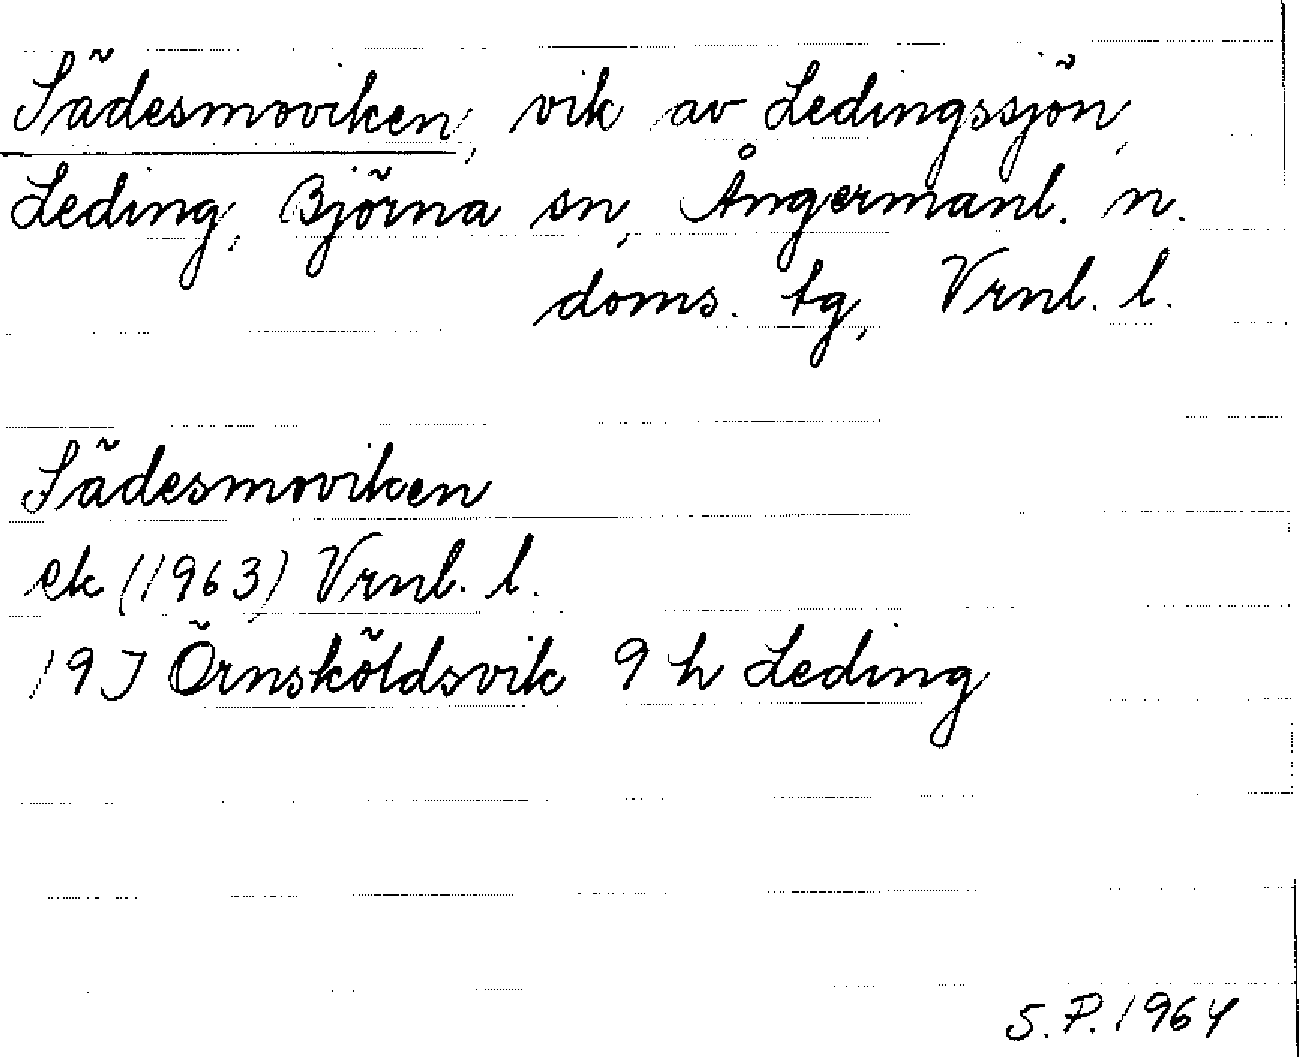 Sädesmoviken, vik av Ledingssjön,
Leding, Björna sn, Ångermanl. n.
doms. tg, Vrnl. l.
Sädesmoviken
ek (1963) Vrnl. l.
19J Örnsköldsvik 9 h Leding
S.P. 1964